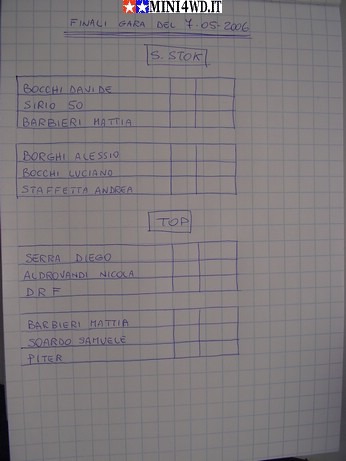 MINI4WD.IT
FINALI GARA DEL 7-05-2006
S. STOK
BOCCHI DAVIDE
SIRIO 50
BARBIERI MATTIA
BORGHI ALESSIO
BOCCHI LUCIANO
STAFFETTA ANDREA
TOP
SERRA DIEGO
ALDROVANDI NICOLA
DRF
BARBIERI MATTIA
SOARDO SAMUELE
PITER